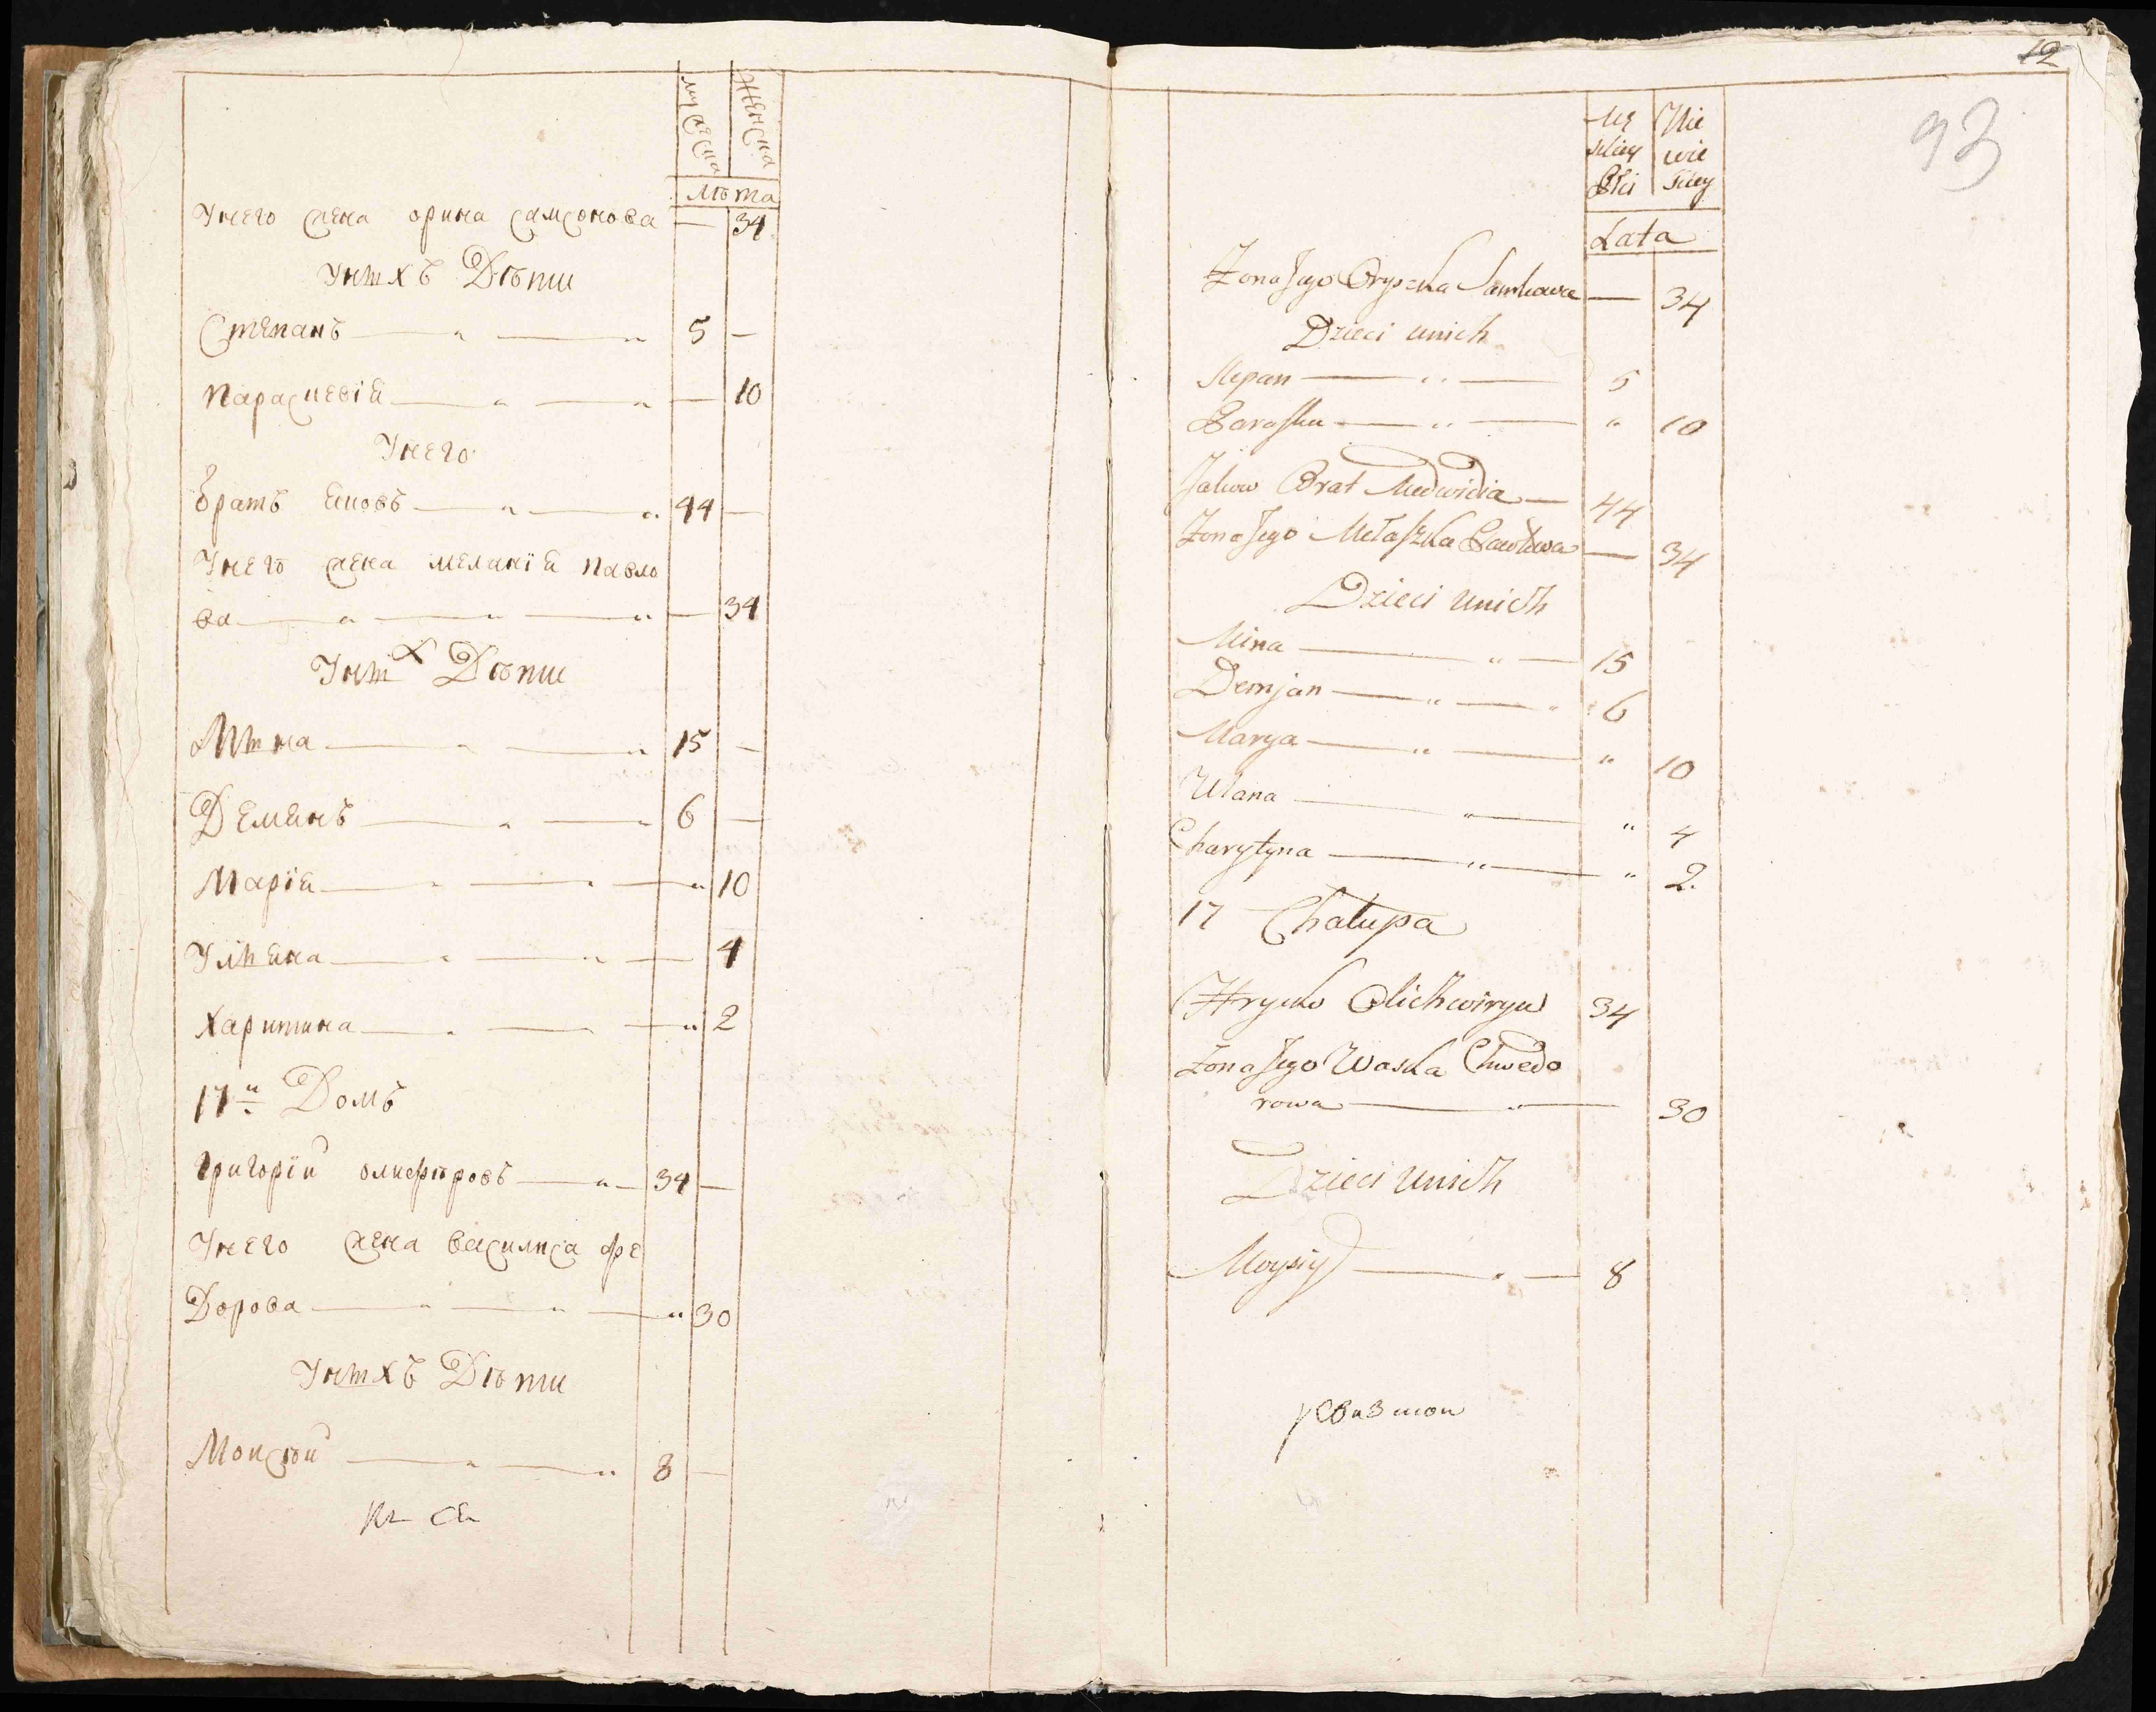 мужеска
женска
лѣта
Унего жена орина самсонова — 34
Унихъ Дѣти
Степанъ — „ — „ 5 —
параскевія — „ — „ — 10
Унего
братъ яковъ — „ — „ 44 —
Унего жена меланія павло
ва — „ — „ — „ — 34
Уних Дѣти
Мина — „ — „ 15 —
Демянъ — „ — „ 6 —
Марія — „ — „ — „ 10
Уліяна — „ — „ — 4
Харитина — „ — — „ 2
17й Домъ
Григорій олифѣровъ — „ — 34 —
Унего жена василиса фе
Дорова — „ — „ — „ 30
Унихъ Дѣти
Моисѣй — „ — „ 8 —
12
93
Mę skiey Płci
Nie wie sciey
Lata
Żona Jego Oryszka Samkowa — 34
Dzieci unich
Stepan — „ — 5
Paraska — „ — „ 10
Jakow Brat Medwidia — 44
Żona Jego Melaszka Pawłowa — 34
Dzieci unich
Mina — „ — 15
Demjan — „ — „ 6
Marya — „ — „ 10
Ulana — „ — „ 4
Charytyna — „ — „ 2.
17 Chałupa
Hryćko Olichwiryw 34
Żona Jego Waska Chwedo
rowa — „ — 30
Dzieci unich
Moysiy — „ — 8